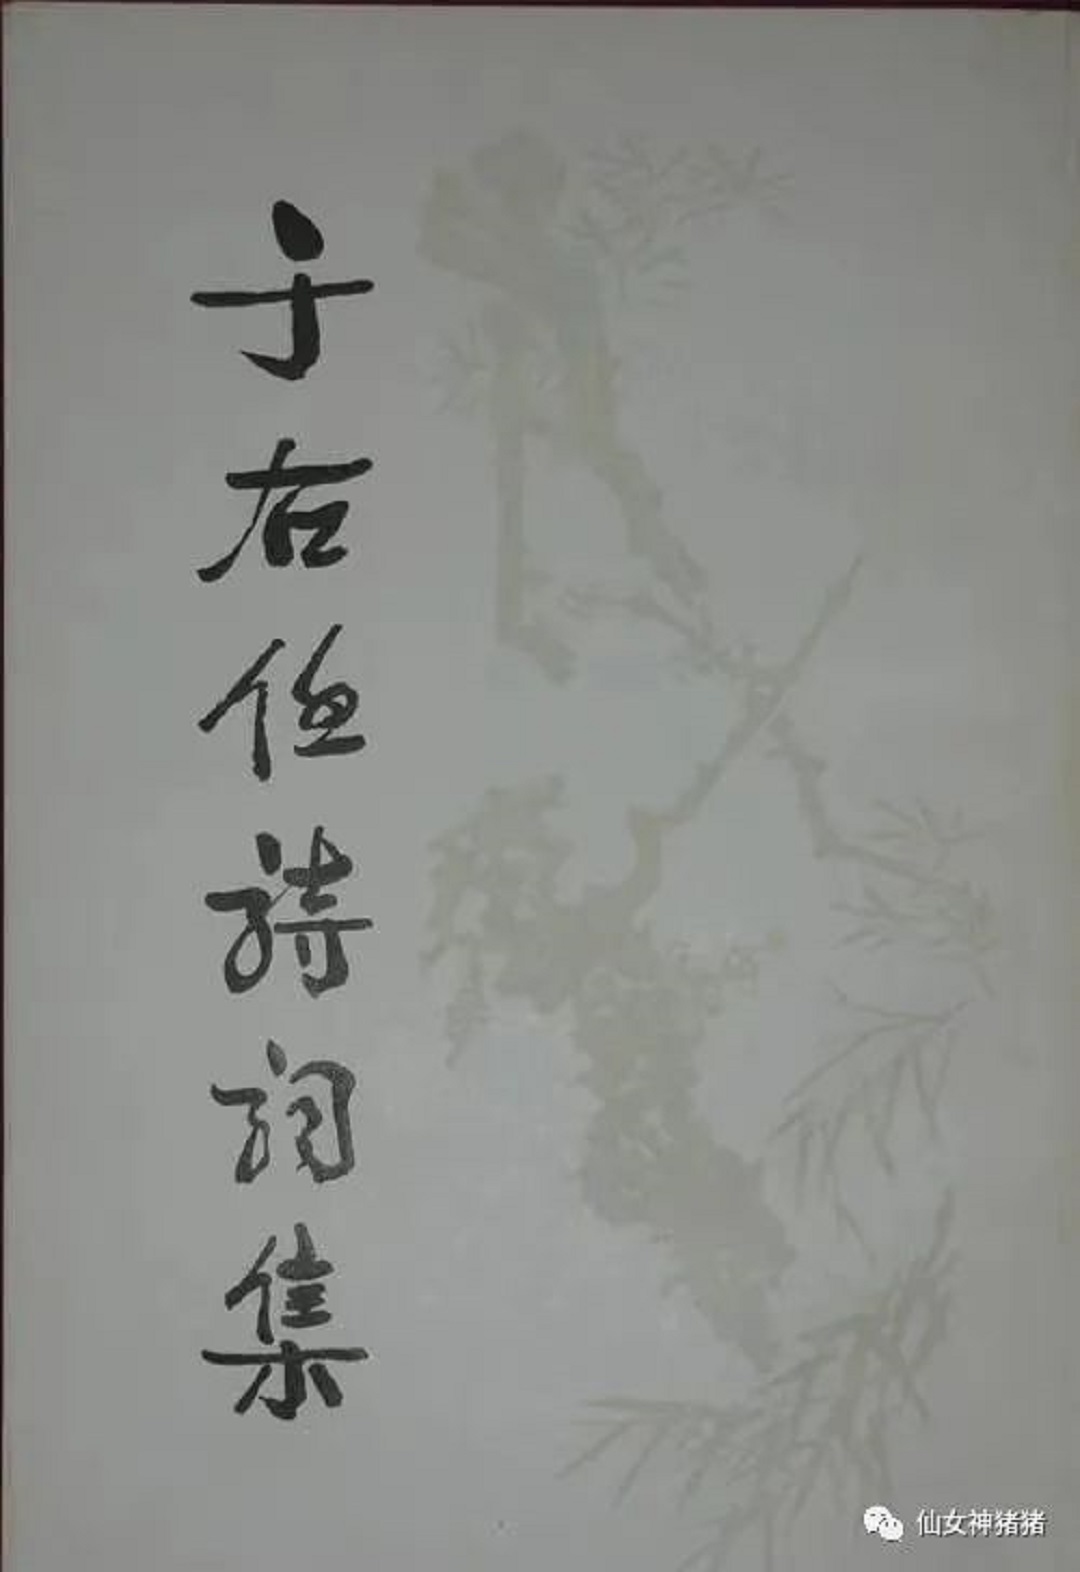 于右任詩詞集
仙女神猪猪